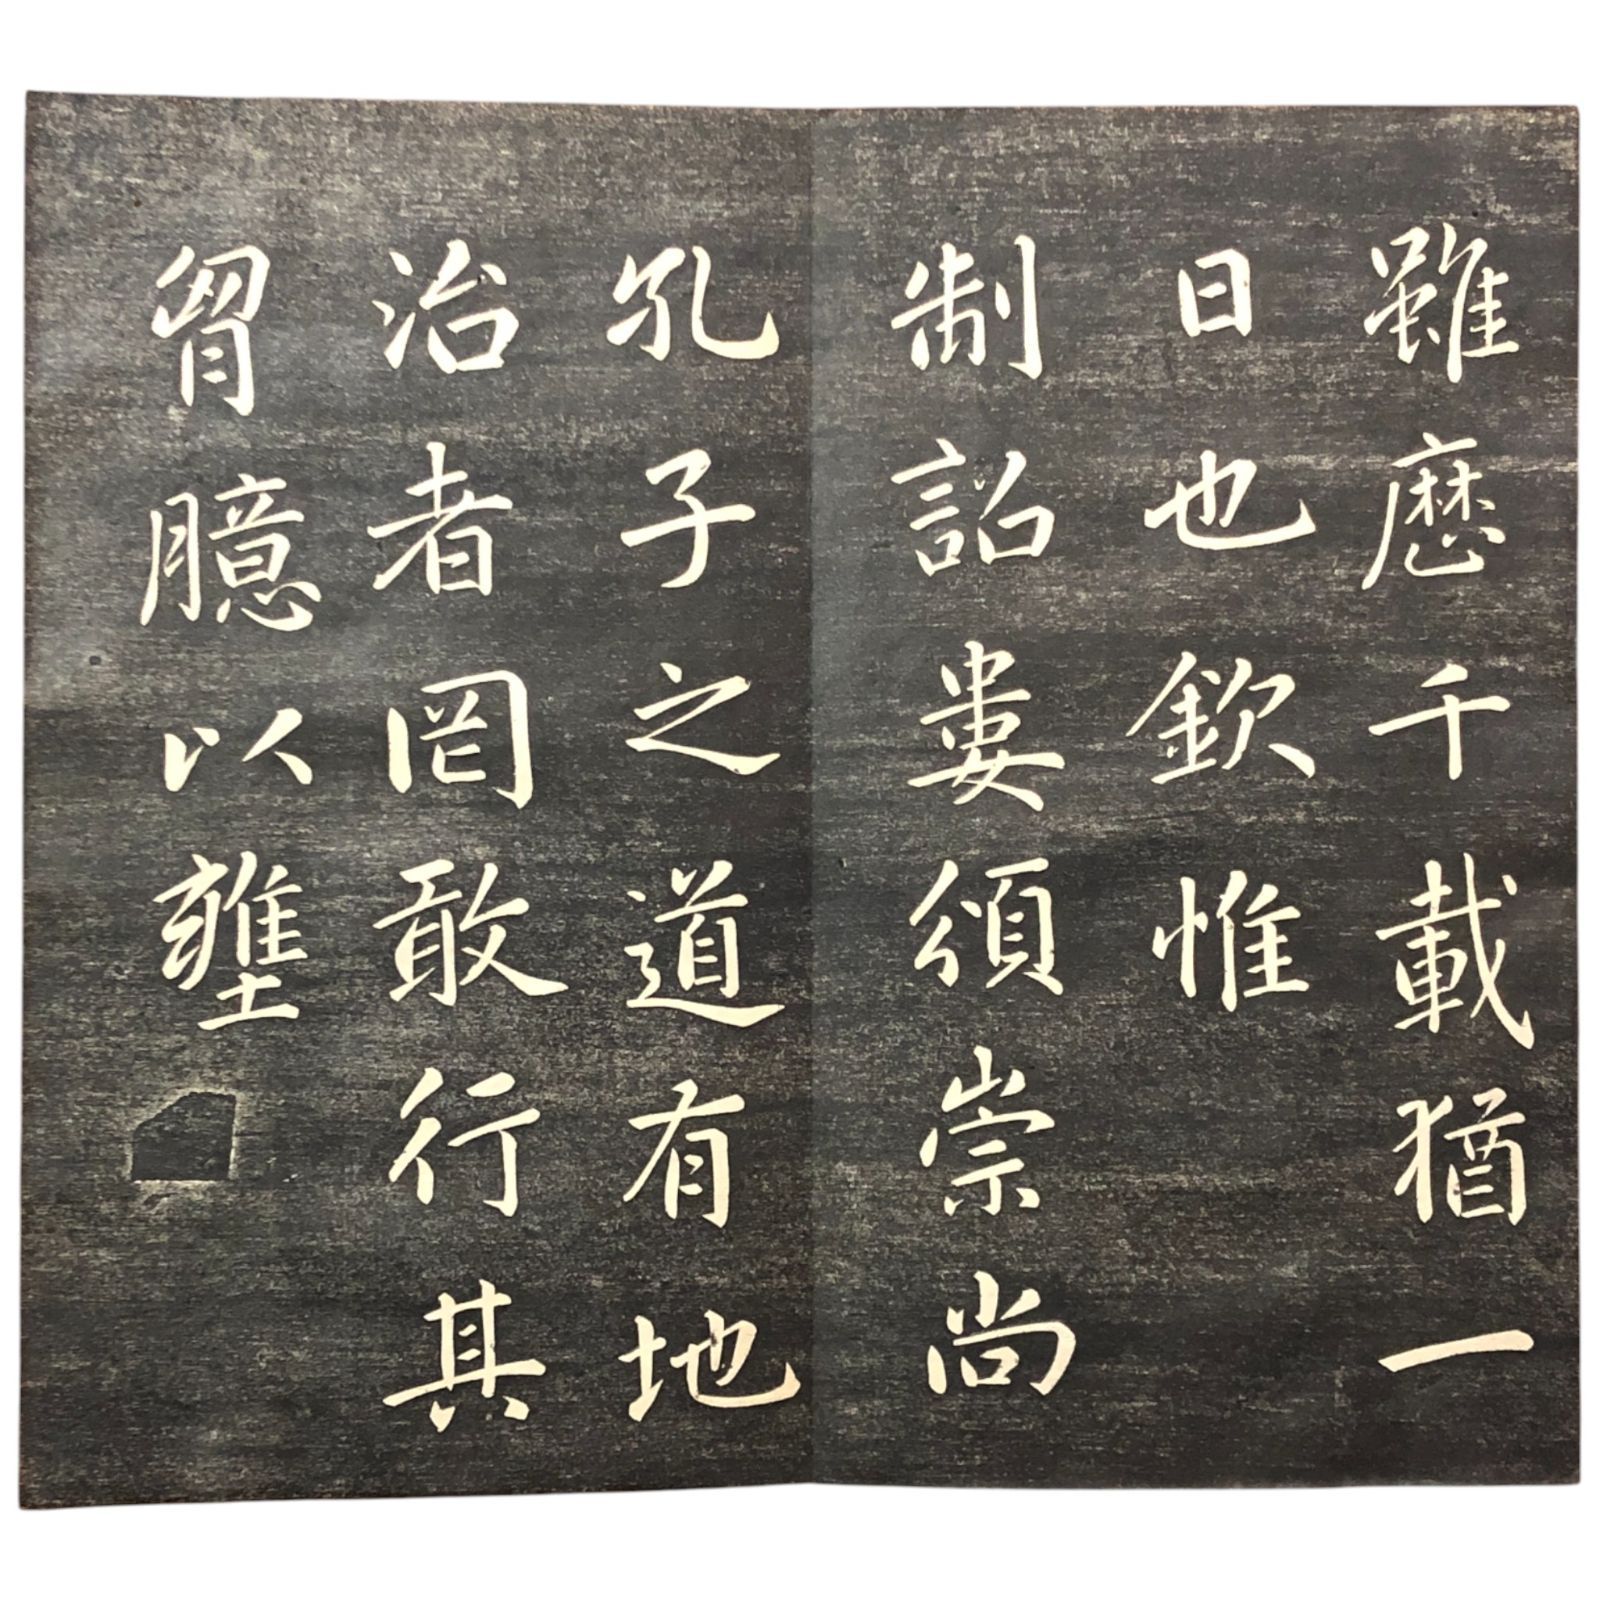 雖歷千載猶一
日也欽惟
制詔婁頒崇尚
孔子之道有地
治者罔敢行其
胷臆以壅